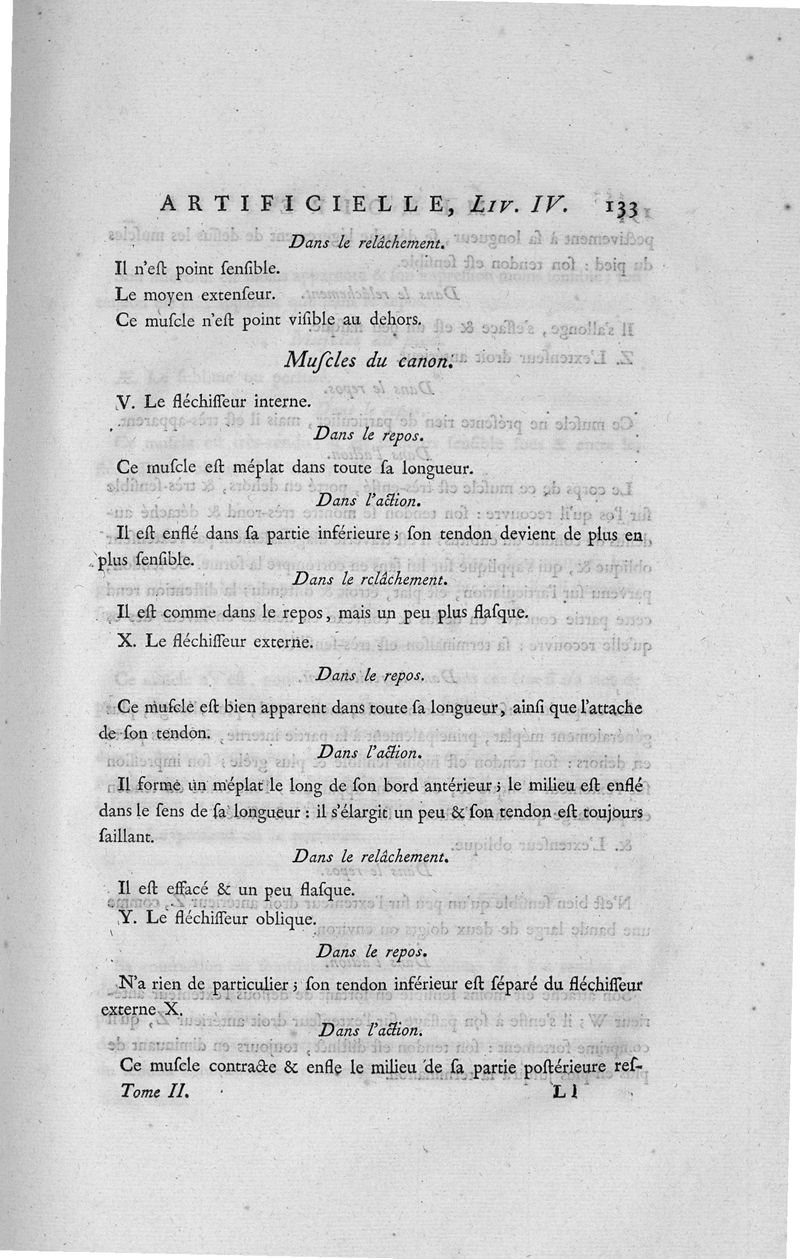 ARTIFICIELLE, Liv. IV. 133
Dans le relâchement.
Il n'eſt point ſenſible.
Le moyen extenſeur.
Ce muſcle n'eſt point viſible au dehors.
Muſcles du canon.
V. Le fléchiſſeur interne.
Dans le repos.
Ce muſcle eſt méplat dans toute ſa longueur.
Dans l'action.
Il eſt enflé dans ſa partie inférieure ; ſon tendon devient de plus en
plus ſenſible.
Dans le relâchement.
Il eſt comme dans le repos, mais un peu plus flaſque.
X. Le fléchiſſeur externe.
Dans le repos.
Ce muſcle eſt bien apparent dans toute ſa longueur, ainſi que l'attache
de ſon tendon.
Dans l'action.
Il forme un méplat le long de ſon bord antérieur ; le milieu eſt enflé
dans le ſens de ſa longueur : il s'élargit un peu & ſon tendon eſt toujours
ſaillant.
Dans le relâchement.
Il eſt effacé & un peu flaſque.
Y. Le fléchiſſeur oblique.
Dans le repos.
N'a rien de particulier ; ſon tendon inférieur eſt ſéparé du fléchiſſeur
externe X.
Dans l'action.
Ce muſcle contracte & enfle le milieu de ſa partie poſtérieure reſ-
Tome II. L l